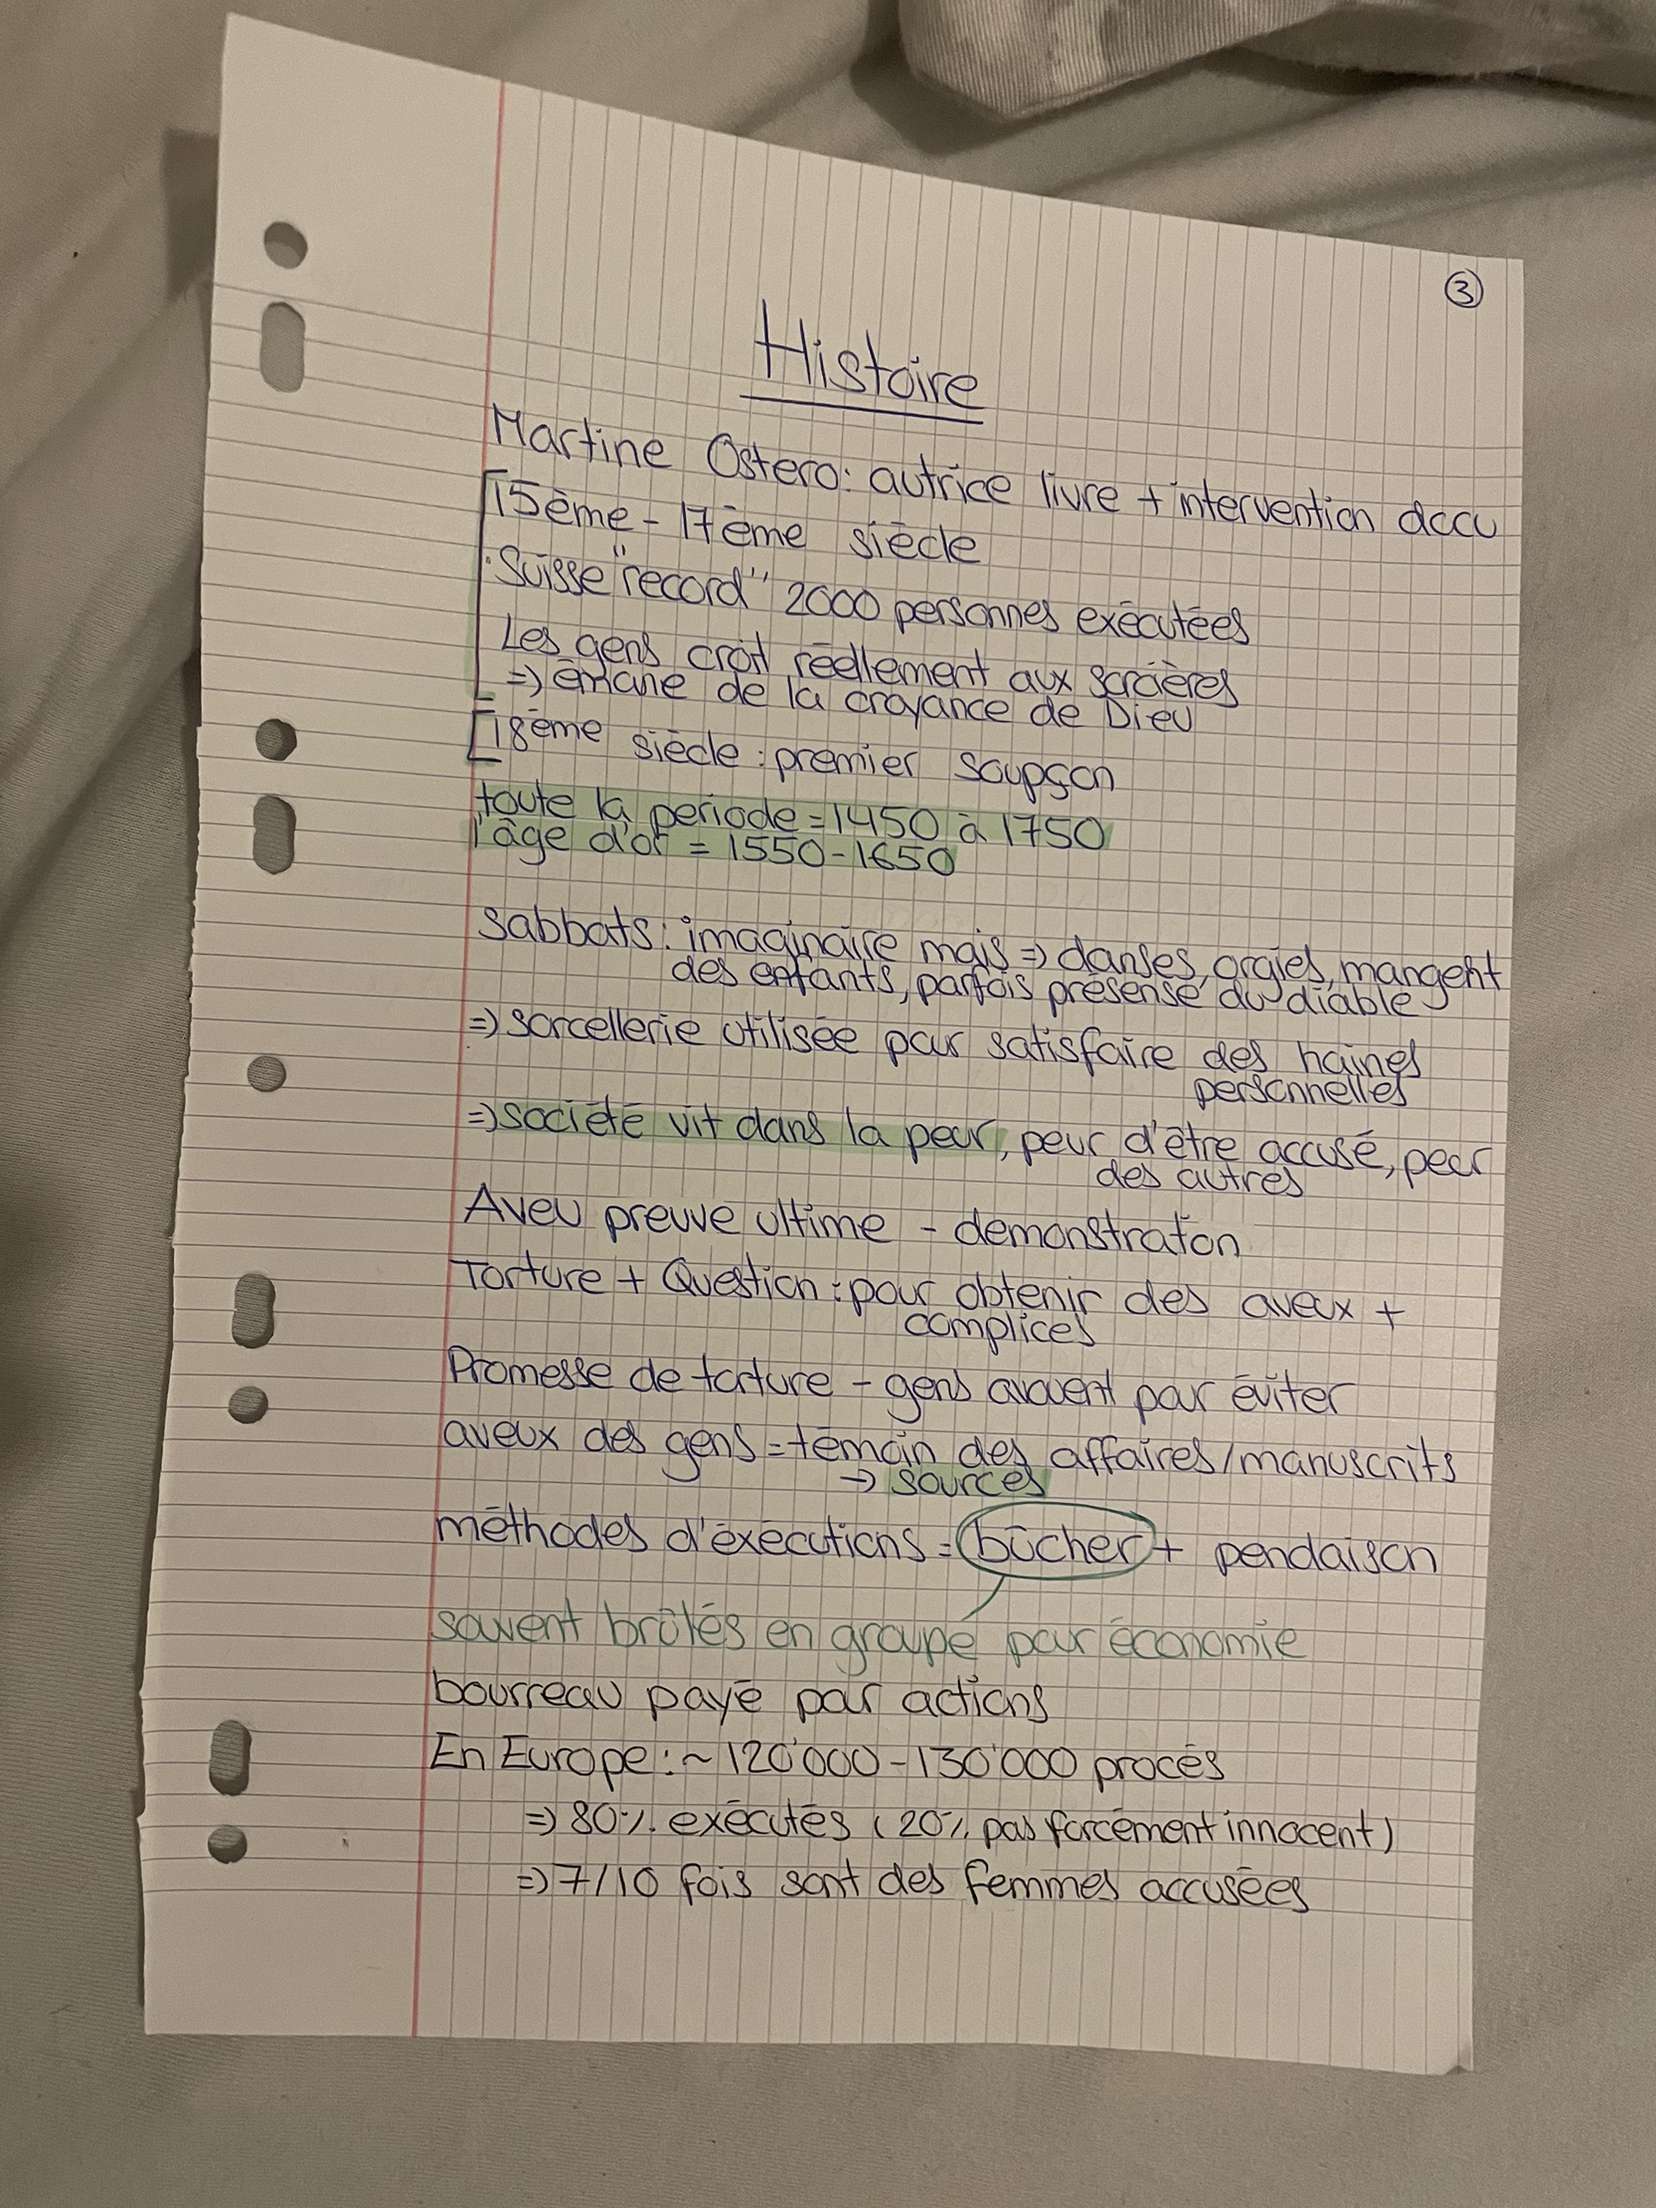 ③
Histoire
Martine Ostero: autrice livre + intervention docu
15ème - 17ème siècle
Suisse "record" 2000 personnes exécutées
Les gens croit réellement aux sorcières
=> émane de la croyance de Dieu
18ème siècle : premier soupçon
toute la période = 1450 à 1750
l'âge d'or = 1550-1650
sabbats: imaginaire mais => danses, orgies, mangent
des enfants, parfois présense du diable
=> sorcellerie utilisée pour satisfaire des haines
personnelles
=> société vit dans la peur, peur d'être accusé, peur
des autres
Aveu preuve ultime - demonstration
Torture + Question : pour obtenir des aveux +
complices
Promesse de torture - gens avouent pour éviter
aveux des gens = témoin des affaires/manuscrits
-> sources
méthodes d'éxécutions = bûcher + pendaison
souvent brûlés en groupe pour économie
bourreau payé par actions
En Europe : ~ 120'000 - 130'000 procès
=> 80% exécutés (20% pas forcément innocent)
=> 7/10 fois sont des femmes accusées